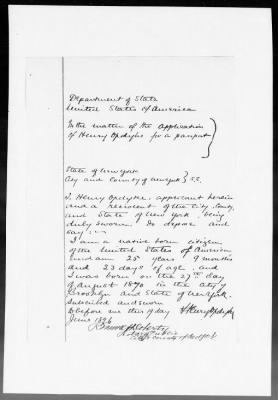 Department of State
United States of America
In the matter of the application
of Henry Opdyke for a passport
State of New York
City and County of New York } S.S.
I, Henry Opdyke, applicant herein
and a resident of the City, County
and State of New York, being
duly sworn do depose and
say:—
I am a native born citizen
of the United States of America
and am 25 years 9 months
and 23 days of age, and
I was born on the 27th day
of August 1870 in the City of
Brooklyn and State of New York.
Subscribed and sworn
to before me this 19 day Henry Opdyke
June 1896
Notary Public
City & County of New York